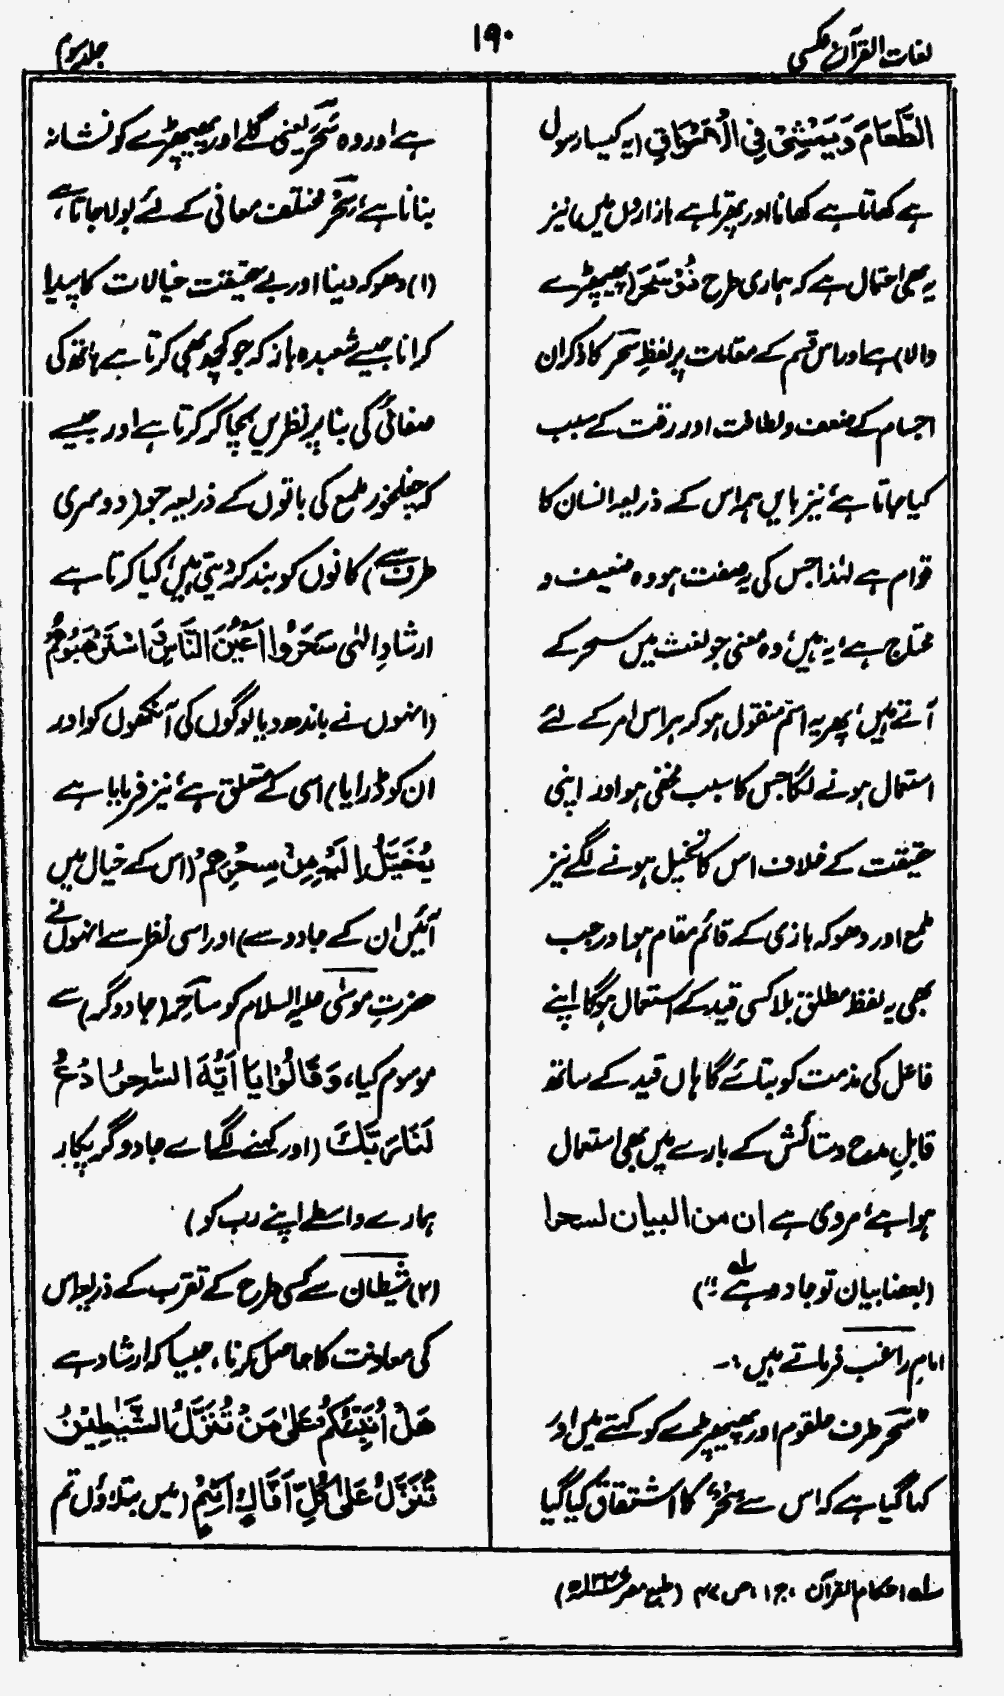 لغات القرآن عکسی
۱۹۰
جلد سوم
الطَّعَامَ وَيَمْشِيْ فِي الْاَسْوَاقِ (یہ کیسا رسول
ہے کھاتا ہے کھانا اور پھرتا ہے بازاروں میں) نیز
یہ بھی احتمال ہے کہ ہماری طرح ذُوْ سَحَرَ (پھیپھڑے
والا) ہے اور اس قسم کے مقامات پر لفظِ سَحَر کا ذکر ان
اجسام کے ضعف و لطافت اور رقت کے سبب
کیا جاتا ہے نیز بایں ہمہ اس کے ذریعہ انسان کا
قوام ہے لہٰذا جس کی یہ صفت ہو وہ ضعیف و
محتاج ہے، یہ ہیں، وہ معنی جو لغت میں سحر کے
آتے ہیں، پھر یہ اسم منقول ہو کر ہر اس امر کے لئے
استعمال ہونے لگا جس کا سبب مخفی ہو اور اپنی
حقیقت کے خلاف اس کا تخیل ہونے لگے نیز
طمع اور دھوکہ بازی کے قائم مقام ہو اور جب
بھی یہ لفظ مطلق بلا کسی قید کے استعمال ہوگا اپنے
فاعل کی مذمت کو بتائے گا ہاں قید کے ساتھ
قابلِ مدح و ستائش کے بارے میں بھی استعمال
ہوا ہے، مروی ہے ان من البیان لسحرا
(بعضا بیان تو جادو ہے) ؎۱
امام راغب فرماتے ہیں :۔
"سَحَر طرف حلقوم اور پھیپھڑے کو کہتے ہیں اور
کہا گیا ہے کہ اس سے سِحْر کا اشتقاق کیا گیا
ہے اور وہ سَحَر یعنی گلے اور پھیپھڑے کو نشانہ
بنانا ہے، سِحْر مختلف معانی کے لئے بولا جاتا ہے،
(۱) دھوکہ دینا اور بے حقیقت خیالات کا پیدا
کرانا جیسے شعبدہ باز کہ جو کچھ بھی کرتا ہے ہاتھ کی
صفائی کی بنا پر نظریں بچا کر کرتا ہے اور جیسے
کہ چغلخور ملمع کی باتوں کے ذریعہ جو (دوسری
طرف سے) کانوں کو بند کر دیتی ہیں، کیا کرتا ہے
ارشادِ الٰہی سَحَرُوا اَعْيُنَ النَّاسِ وَاسْتَرْهَبُوهُمْ
(انہوں نے باندھ دیا لوگوں کی آنکھوں کو اور
ان کو ڈرایا) اسی کے متعلق ہے، نیز فرمایا ہے
يُخَيَّلُ اِلَيْهِ مِنْ سِحْرِهِمْ (اس کے خیال میں
آئیں ان کے جادو سے) اور اسی نظر سے انہوں نے
حضرتِ موسیٰ علیہ السلام کو سَاحِر (جادوگر) سے
موسوم کیا، وَقَالُوْا يَا اَيُّهَ السّٰحِرُ ادْعُ
لَنَا رَبَّكَ (اور کہنے لگے اے جادوگر پکار
ہمارے واسطے اپنے رب کو)
(۲) شیطان سے کسی طرح کے تقرب کے ذریعہ اس
کی معاونت کا حاصل کرنا، جیسا کہ ارشاد ہے
هَلْ اُنَبِّئُكُمْ عَلٰى مَنْ تَنَزَّلُ الشَّيٰطِيْنُ
تَنَزَّلُ عَلٰى كُلِّ اَفَّاكٍ اَثِيْمٍ (میں بتلاؤں تم
؎۱ احکام القرآن ج ۱، ص ۴۷ (طبع مصر ۱۳۴۷ھ)